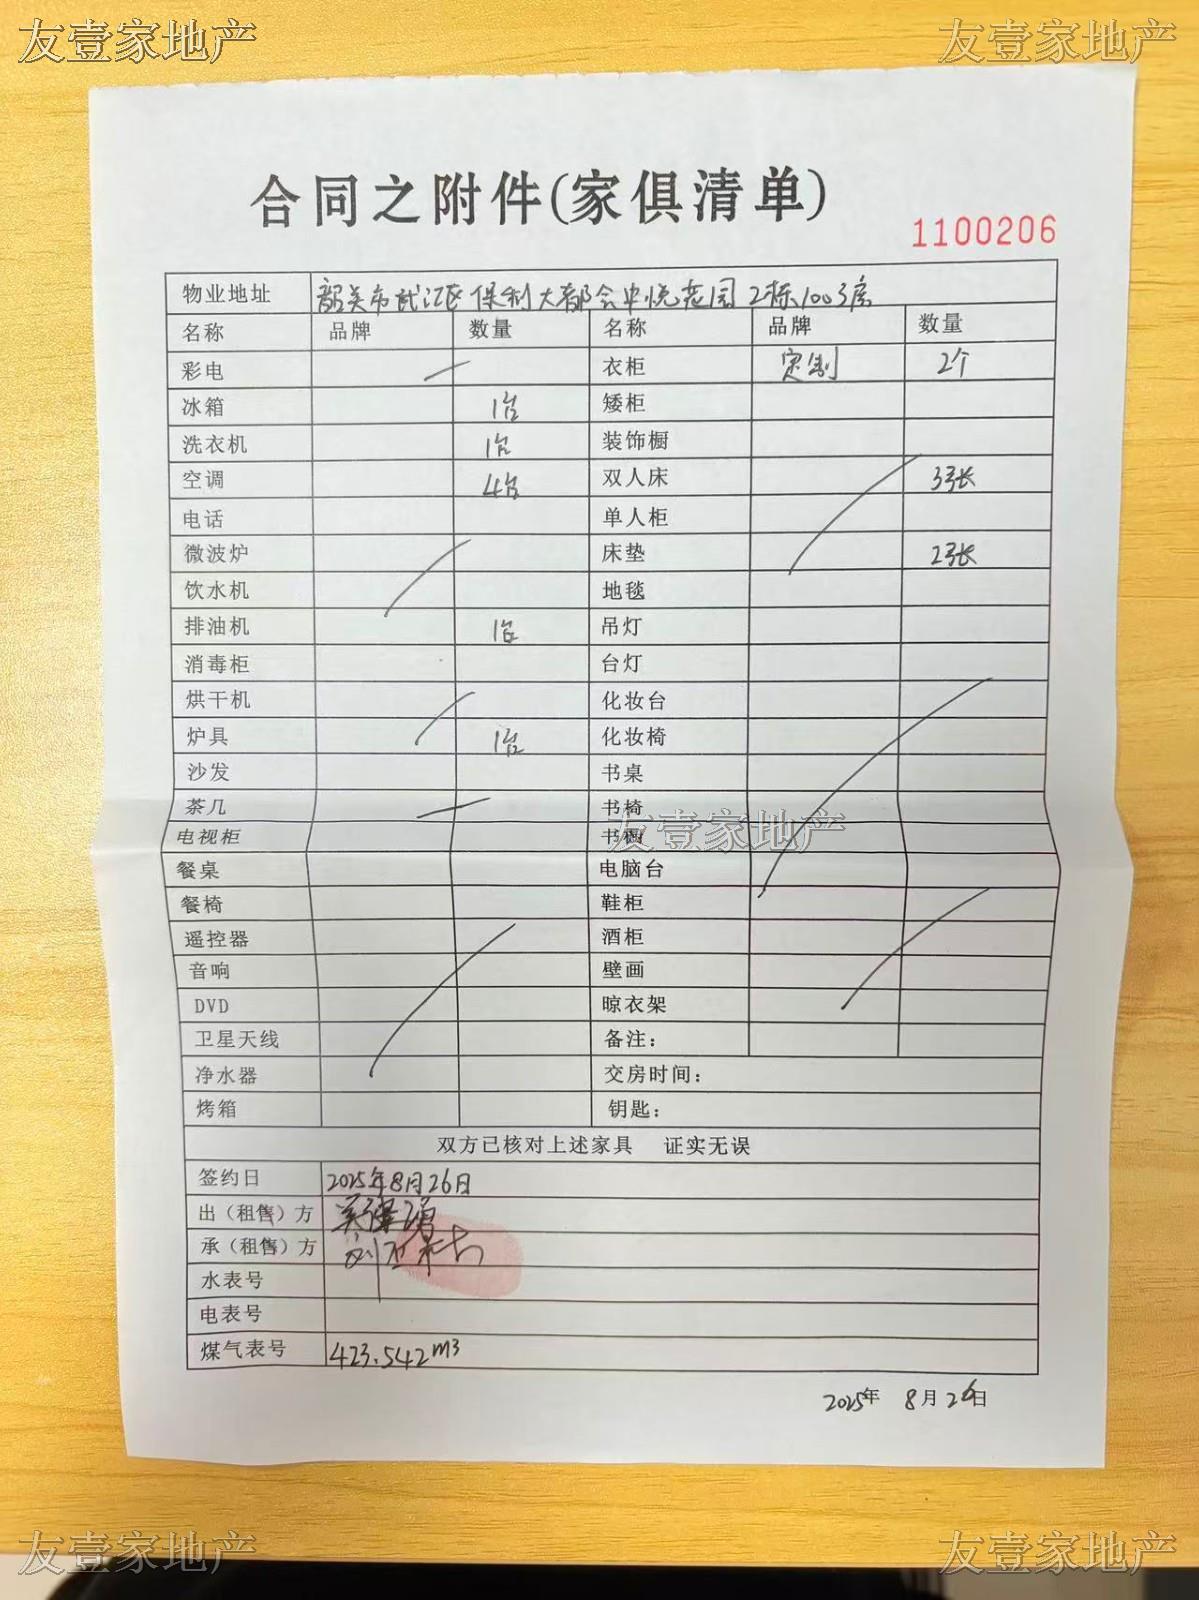 友壹家地产 友壹家地产
合同之附件(家俱清单)
1100206
物业地址 韶关市武江区保利大都会中悦花园2栋1003房
名称 品牌 数量 名称 品牌 数量
彩电 衣柜 定制 2个
冰箱 1台 矮柜
洗衣机 1台 装饰橱
空调 4台 双人床 3张
电话 单人柜
微波炉 床垫 2张
饮水机 地毯
排油机 1台 吊灯
消毒柜 台灯
烘干机 化妆台
炉具 1台 化妆椅
沙发 书桌
茶几 书椅
友壹家地产
电视柜 书橱
餐桌 电脑台
餐椅 鞋柜
遥控器 酒柜
音响 壁画
DVD 晾衣架
卫星天线 备注：
净水器 交房时间：
烤箱 钥匙：
双方已核对上述家具 证实无误
签约日 2025年8月26日
出（租售）方
承（租售）方
水表号
电表号
煤气表号 423.542m3
2025年 8月26日
友壹家地产 友壹家地产